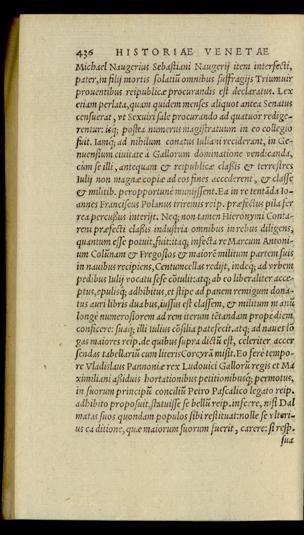 436 HISTORIAE VENETAE
Michael Naugerius Sebastiani Naugerij item interfecti,
pater, in filij mortis solatiū omnibus suffragijs Triumuir
prouentibus reipublicæ procurandis est declaratus. Lex
etiam perlata, quam quidem menses aliquot antea Senatus
censuerat, vt Sexuiri sale procurando ad quatuor redige-
rentur: isq; postea numerus magistratuum in eo collegio
fuit. Ianq; ad nihilum conatus Iuliani reciderant, in Ge-
nuensium ciuitate à Gallorum dominatione vendicanda,
cùm se illi, antequam & reipublicæ classis & terrestres
Iulij non magnæ copiæ ad eos fines accederent, & classe
& militib. peropportunè munijssent. Ea in re tentāda Io-
annes Franciscus Polanus triremis reip. præfectus pila fer
rea percussus interijt. Neq; non tamen Hieronymi Conta-
reni præfecti classis industria omnibus in rebus diligens,
quantum esse potuit, fuit: itaq; infecta re Marcum Antoni-
um Colūnam & Fregosios & maiorē militum partem suis
in nauibus recipiens, Centumcellas redijt, indeq; ad vrbem
pedibus Iulij vocatu sese cōtulit: atq; ab eo liberaliter acce-
ptus, epulisq; adhibitus, et stipe ad panem emendum dona-
tus auri libris duabus, iussus est classem, & militum manū
longè numerosiorem ad rem iterum tētandam propediem
conficere: suaq; illi tulius cōsilia patefecit. atq; ad naues lō
gas maiores reip. de quibus supra dictū est, celeriter accer
sendas tabellariū cum literis Corcyrā misit. Eo ferè tempo-
re Vladislaus Pannoniæ rex Ludouici Gallorū regis et Ma
ximiliani assiduis hortationibus petitionibusq; permotus,
in suorum principū concilιū Petro Pascalico legato reip.
adhibito proposuit, statuisse se bellū reip. inferre, nisi Dal
matas suos quondam populos sibi restituat: nolle se vlteri-
us ea ditione, quæ maiorum suorum fuerit, carere: si resp.
sua